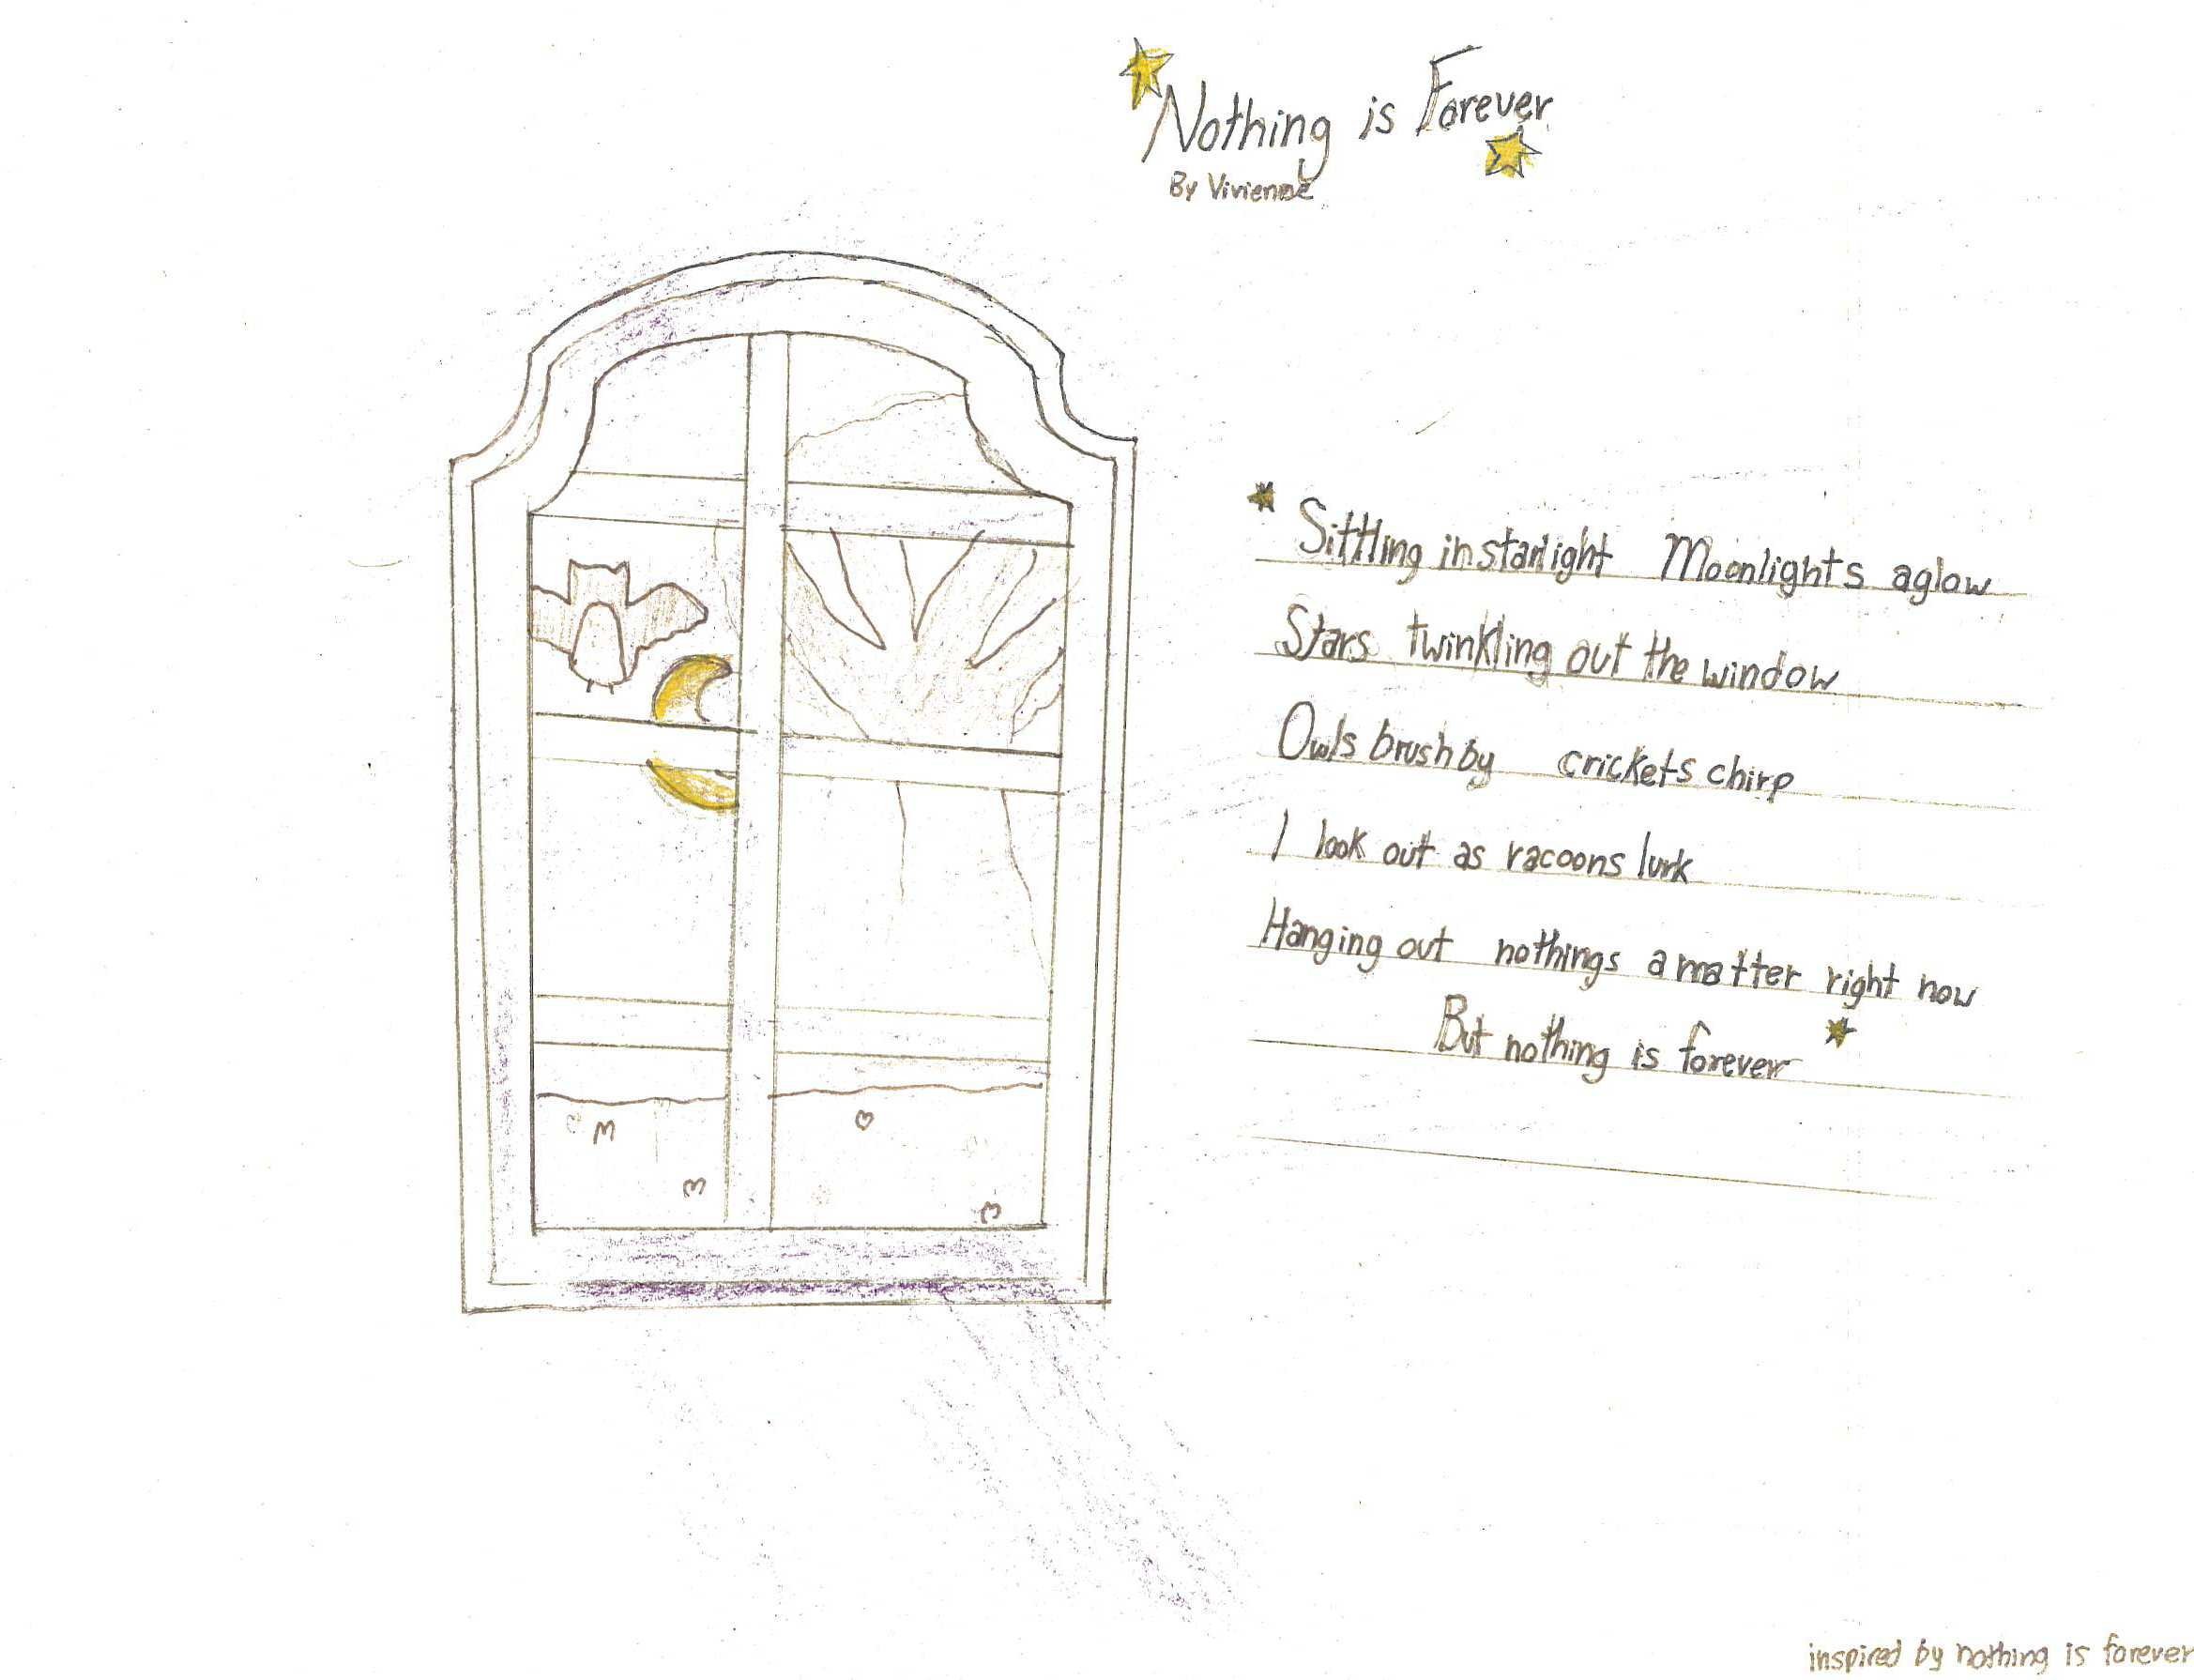 Nothing is Forever
By Vivienne
Sittling in starlight Moonlights aglow
Stars twinkling out the window
Owls brush by crickets chirp
I look out as racoons lurk
Hanging out nothings a matter right now
But nothing is forever
inspired by nothing is forever